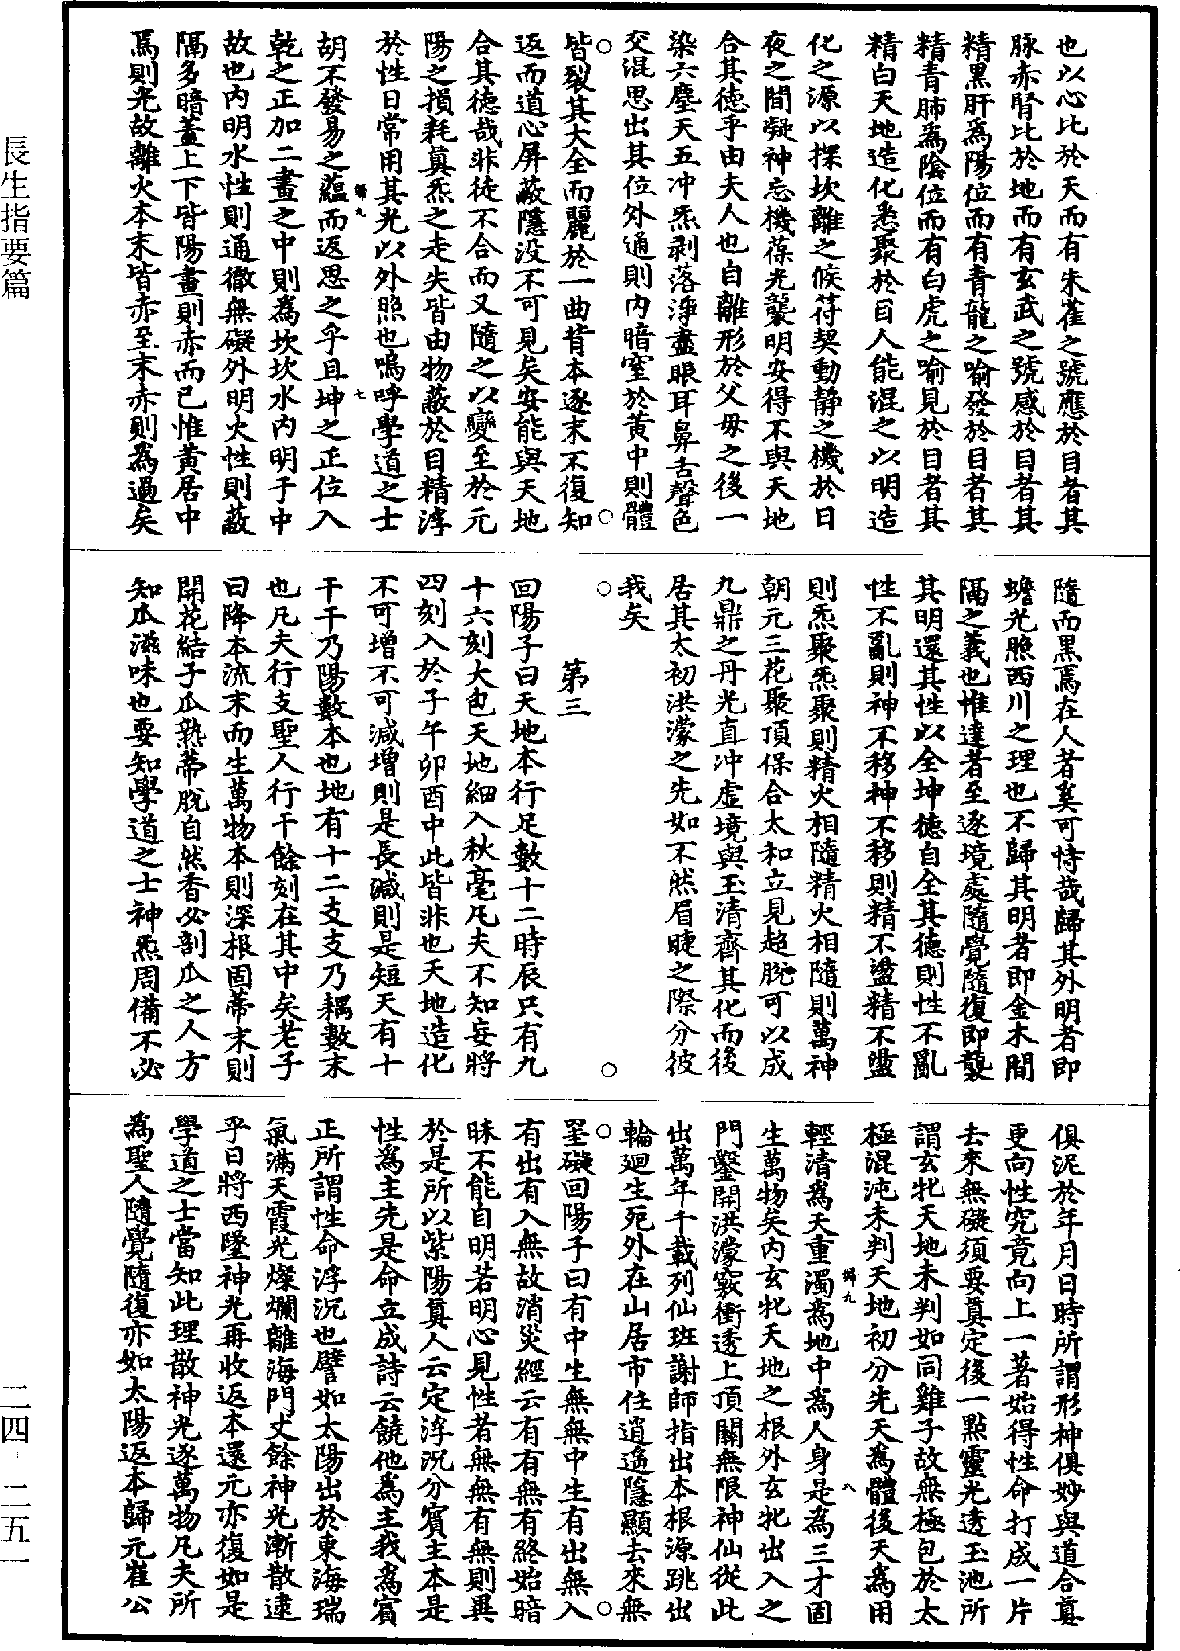 也以心比於天而有朱雀之號應於目者其
脉赤腎比於地而有玄武之號感於目者其
精黑肝為陽位而有青龍之喻發於目者其
精青肺為陰位而有白虎之喻見於目者其
精白天地造化悉聚於目人能混之以明造
化之源以探坎離之候符契動静之機於日
夜之間凝神忘機葆光襲明安得不與天地
合其德乎由夫人也自離形於父母之後一
染六塵天五冲炁剥落淨盡眼耳鼻舌聲色
交混思出其位外通則内暗窒於黄中則體
皆裂其大全而麗於一曲背本逐末不復知
返而道心屏蔽隱没不可見矣安能與天地
合其德哉非徒不合而又隨之以變至於元
陽之損耗真炁之走失皆由物蔽於目精淳
於性日常用其光以外照也嗚呼學道之士
胡不發易之蘊而返思之乎且坤之正位入
乾之正加二畫之中則為坎坎水内明于中
故也内明水性則通徹無礙外明火性則蔽
隔多暗蓋上下皆陽畫則赤而已惟黄居中
焉則光故離火本末皆赤至末赤則為過矣
隨而黑焉在人者奚可恃哉歸其外明者即
蟾光照西川之理也不歸其明者即金木間
隔之義也惟達者至逐境處隨覺隨復即襲
其明還其性以全坤德自全其德則性不亂
性不亂則神不移神不移則精不盪精不盪
則炁聚炁聚則精火相隨精火相隨則萬神
朝元三花聚頂保合太和立見超脫可以成
九鼎之丹光直冲虛境與玉清齊其化而後
居其太初洪濛之先如不然眉睫之際分彼
我矣
第三
回陽子曰天地本行足數十二時辰只有九
十六刻大包天地細入秋毫凡夫不知妄將
四刻入於子午卯酉中此皆非也天地造化
不可增不可減增則是長減則是短天有十
干干乃陽數本也地有十二支支乃耦數末
也凡夫行支聖人行干餘刻在其中矣老子
曰降本流末而生萬物本則深根固蒂末則
開花結子瓜熟蒂脫自然香必剖瓜之人方
知瓜滋味也要知學道之士神炁周備不必
俱泥於年月日時所謂形神俱妙與道合真
更向性究竟向上一著始得性命打成一片
去來無礙須要真定後一點靈光透玉池所
謂玄牝天地未判如同雞子故無極包於太
極混沌未判天地初分先天為體後天為用
輕清為天重濁為地中為人身是為三才固
生萬物矣内玄牝天地之根外玄牝出入之
門鑿開洪濛竅衝透上頂關無限神仙從此
出萬年千載列仙班謝師指出本根源跳出
輪廻生死外在山居市任逍遥隱顯去來無
罣礙回陽子曰有中生無無中生有出無入
有出有入無故消災經云有有無有終始暗
昧不能自明若明心見性者無無有無則異
於是所以紫陽真人云定浮沉分賓主本是
性為主先是命立成詩云饒他為主我為賓
正所謂性命浮沉也譬如太陽出於東海瑞
氣滿天霞光燦爛離海門丈餘神光漸散逮
乎日將西墜神光再收返本還元亦復如是
學道之士當知此理散神光逐萬物凡夫所
為聖人隨覺隨復亦如太陽返本歸元崔公
長生指要篇
二四-二五一